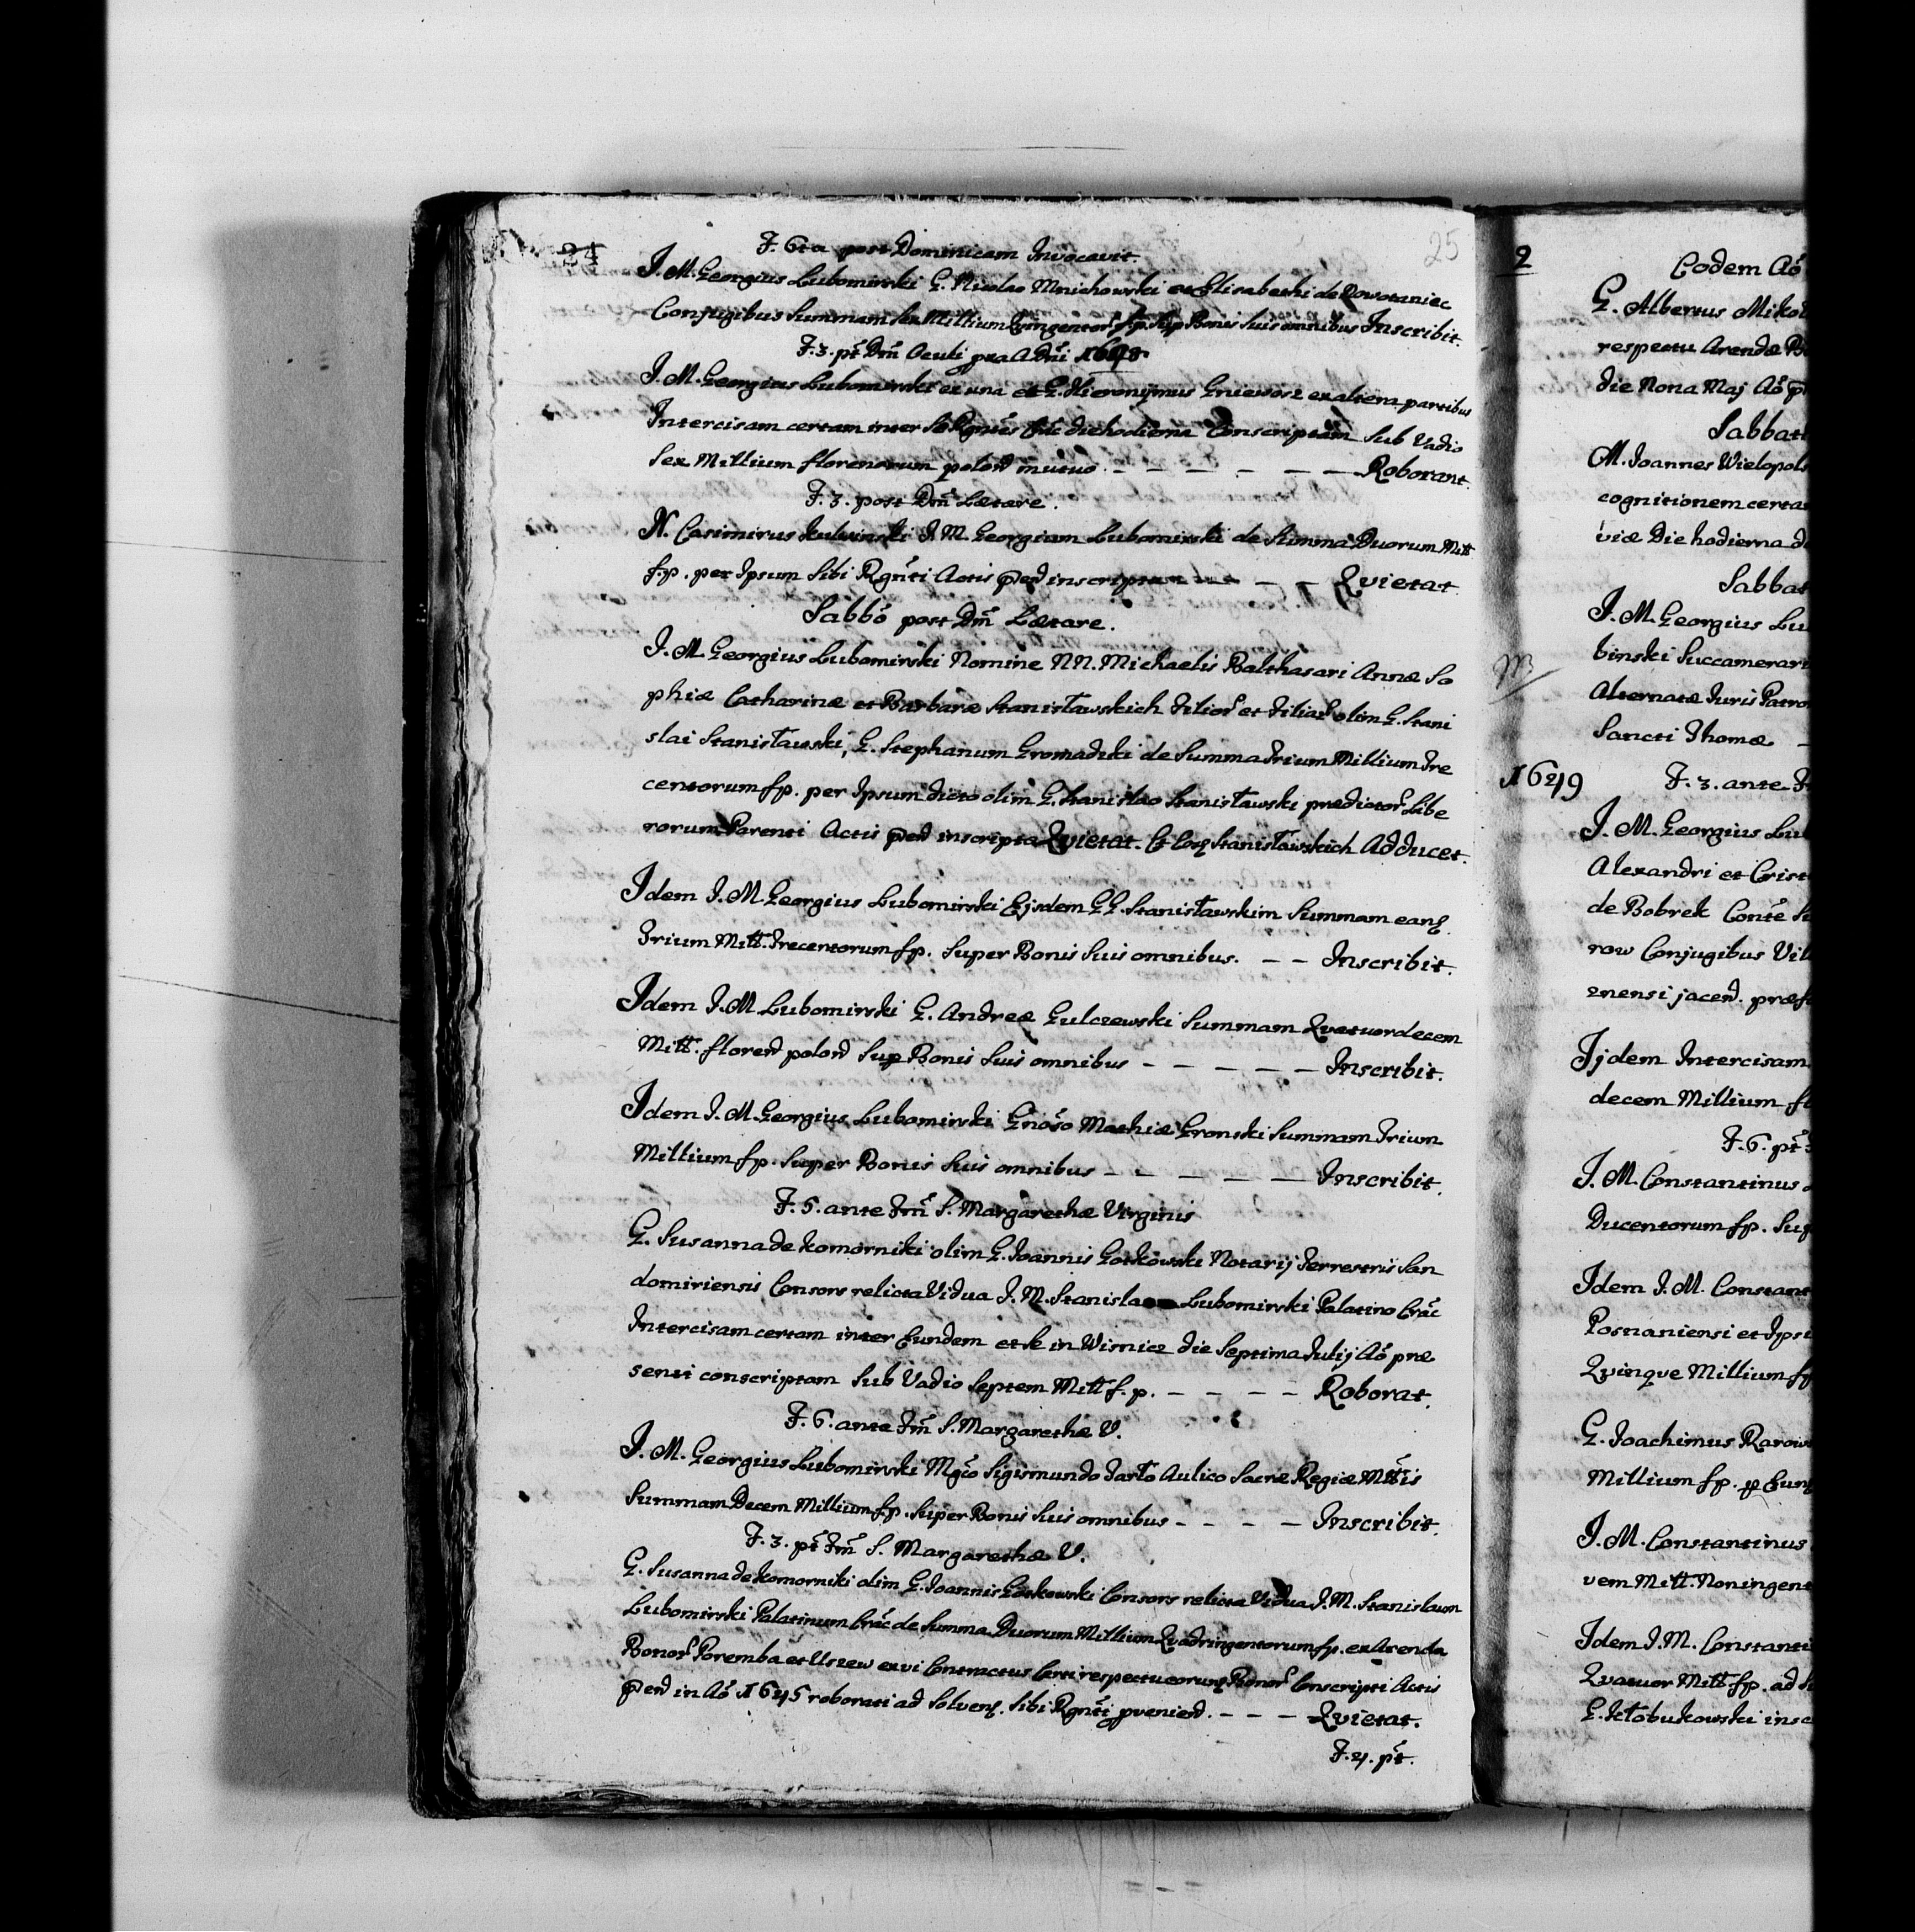 24
25
F. 6ta post Dominicam Invocavit.
J. M. Georgius Lubomirski G. Nicolao Mnichowski et Elisabethi de Nowotaniec
Conjugibus Summam Sex Millium Qvingentor fp. Sup Bonis Suis omnibus Inscribit.
F. 3. pt Dm Oculi
J. M. Georgius Lubomirski ex una et G. Hieronijmus Gniewosz ex altera partibus
Intercisam certam inter Se Rgntes Crac die hodierna Conscriptam Sub Vadio
Sex Millium florenorum polon mutuo. - - - - - - Roborant.
F. 3. post Dm Lætare.
N. Casimirus J. M. Georgium Lubomirski de Summa Duorum Mill
f.p. per Ipsum Sibi Rgnti Actis pnd inscripta - - Qvietat.
Sabbo post Dm Lætare.
J. M. Georgius Lubomirski Nomine NN. Michaelis Balthasari Annæ So
phiæ Catharinæ et Barbaræ Stanisławskich Filior et Filiar olim G. Stani
slai Stanisławski, G. Stephanum Gromadzki de Summa Trium Millium Tre
centorum fp. per Ipsum dicto olim G. Stanislao Stanisławski prædictor Libe
rorum Parenti Actis pnd inscripta Qvietat. Et Eosq Stanisławskich Adducet.
Idem J. M. Georgius Lubomirski Ejsdem GG. Stanisławskim Summam eanq
Trium Mill. Trecentorum fp. Super Bonis Suis omnibus. - - Inscribit.
Idem J. M. Lubomirski G. Andreæ Gulczewski Summam Qvatuordecem
Mill. floren polon Sup Bonis Suis omnibus - - - - - Inscribit.
Idem J. M. Georgius Lubomirski Gnoso Mathiæ Gronski Summam Trium
Millium fp. Super Bonis Suis omnibus - - - - - Inscribit.
F. 5. ante Fm S. Margarethæ Virginis
G. Susanna de Komorniki olim G. Joannis Gotkowski Notarij Terrestris San
domiriensis Consors relicta Vidua J. M. Lubomirski Palatino Crac
Intercisam certam inter Eundem et Se in Wisnicz die Septima Julij Ao præ
senti conscriptam Sub Vadio Septem Mill f. p. - - - - Roborat.
F. 6. ante Fm S. Margarethæ V.
J. M. Georgius Lubomirski Mgco Sigismundo Tarło Aulico Sacræ Regiæ Mttis
Summam Decem Millium fp. Super Bonis Suis omnibus - - - - Inscribit.
F. 3. pt Fm S. Margarethæ V.
G. Susanna de Komorniki olim G. Joannis Gotkowski Consors relicta Vidua J. M. Stanislaum
Lubomirski Palatinum Crac de Summa Duorum Millium Qvadringentorum fp. ex Arenda
Bonor Poremba et Uszew ex vi Contractus Certi respectu eorunq Bonor Conscripti Actis
pnd in Ao 1645 roborati ad Solvenq. Sibi Rgnti provenien. - - - Qvietat.
F. 4. pt.
2
Eodem Ao
G. Albertus Mikoł
respectu Arendæ B
die Nona Maj Ao p
Sabbat
M. Joannes Wielopols
cognitionem certa
viæ Die hodierna d
Sabbat
J. M. Georgius Lu
binski Succamerar
Alternatæ Juris Patro
Sancti Thomæ -
1649 F. 3. ante F
J. M. Georgius Lu
Alexandri et Crist
de Bobrek Conte
row Conjugibus Vil
znensi jacen. præf
Ijdem Intercisam
decem Millium fl
F. 6. pt
J. M. Constantinus
Ducentorum fp. Sup
Idem J. M. Constant
Posnaniensi et Ipsi
Qvinqve Millium fp
G. Joachimus Rarows
Millium fp. p Eunq
J. M. Constantinus
vem Mill. Noningent
Idem J. M. Constanti
Qvatuor Mill fp. ad
G. Kłobukowski insc